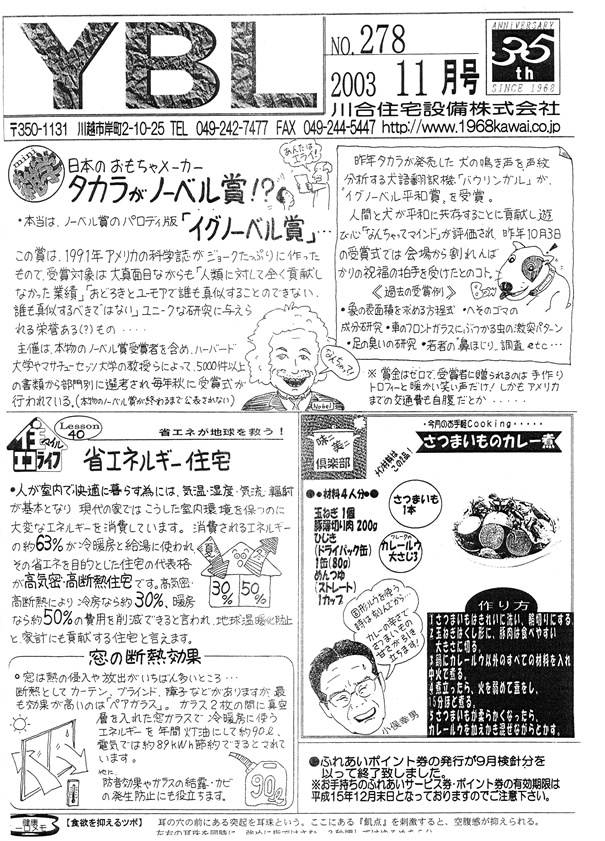 YBL
NO.278
2003 11月号
ANNIVERSARY
35th
SINCE 1968
川合住宅設備株式会社
〒350-1131 川越市岸町2-10-25 TEL 049-242-7477 FAX 049-244-5447 http://www.1968kawai.co.jp
mini
日本のおもちゃメーカー
タカラがノーベル賞!?
あんたはエライ!
・本当は、ノーベル賞のパロディ版「イグノーベル賞」…
この賞は、1991年アメリカの科学誌がジョークたっぷりに作った
もので、受賞対象は大真面目ながらも「人類に対して全く貢献し
なかった業績」「おどろきとユーモアで誰も真似することのできない、
誰も真似するべきではない」ユニークな研究に与えら
れる栄誉ある(?)もの・・・・
主催は、本物のノーベル賞受賞者を含め、ハーバード
大学やマサチューセッツ大学の教授らによって、5,000件以上
の書類から部門別に選考され毎年秋に受賞式が
行われている。(本物のノーベル賞が終わるまで公表されない)
なんちゃって!
Nobel
昨年タカラが発売した犬の鳴き声を声紋
分析する犬語翻訳機「バウリンガル」が、
"イグノーベル平和賞"を受賞。
人間と犬が平和に共存することに貢献し遊
び心「なんちゃってマインド」が評価され、昨年10月3日
の受賞式では会場から割れんば
かりの祝福の拍手を受けたとのコト。
《過去の受賞例》
BOW
・象の表面積を求める方程式 ・へそのゴマの
成分研究 ・車のフロントガラスにぶつかる虫の激突パターン
・足の臭いの研究 ・若者の"鼻ほじり"調査 etc…
※賞金はゼロで、受賞者に贈られるのは手作り
トロフィーと暖かい笑い声だけ!しかもアメリカ
までの交通費も自腹だとか・・・・・
Lesson 40
省エネが地球を救う!
省エネルギー住宅
・人が室内で快適に暮らす為には、気温・湿度・気流・輻射
が基本となり 現代の家ではこうした室内環境を保つのに
大変なエネルギーを消費しています。消費されるエネルギー
の約63%が冷暖房と給湯に使われ、
その省エネを目的とした住宅の代表格
が高気密・高断熱住宅です。高気密・
高断熱により冷房なら約30%、暖房
なら約50%の費用を削減できると言われ、地球温暖化防止
と、家計にも貢献する住宅と言えます。
30%
50%
窓の断熱効果
・窓は熱の侵入や放出がいちばん多いところ…
断熱としてカーテン、ブラインド、障子などがありますが、最
も効果が高いのは「ペアガラス」。ガラス2枚の間に真空
層を入れた窓ガラスで冷暖房に使う
エネルギーを年間灯油にして約90ℓ、
電気では約89kWh節約できるとされて
います。
他に、
防音効果やガラスの結露・カビ
の発生防止にも役立ちます。
90ℓ
味楽倶楽部
・今月のお手軽Cooking・・・・・
さつまいものカレー煮
●●材料4人分●●
玉ねぎ 1個
豚薄切り肉 200g
ひじき
(ドライパック缶)
1缶(80g)
めんつゆ
(ストレート)
1カップ
さつまいも
1本
カレールウ
大さじ3
固形ルウを使う
時は刻んでから…
カレーの辛さで
さつまいもの
甘さが引き
立ちます!
小俣幸男
作り方
1さつまいもはきれいに洗い、乱切りにする
2玉ねぎはくし形に、豚肉は食べやすい
大きさに切る。
3鍋にカレールウ以外のすべての材料を入れ
中火で煮る。
4煮立ったら、火を弱めて蓋をし、
15分ほど煮る。
5さつまいもが柔らかくなったら、
カレールウを加えかき混ぜながらとかす。
●ふれあいポイント券の発行が9月検針分を
以って終了致しました。
※お手持ちのふれあいサービス券・ポイント券の有効期限は
平成15年12月末日となっておりますのでご注意下さい。
健康一口メモ
【食欲を抑えるツボ】 耳の穴の前にある突起を耳珠という。ここにある『飢点』を刺激すると、空腹感が抑えられる。